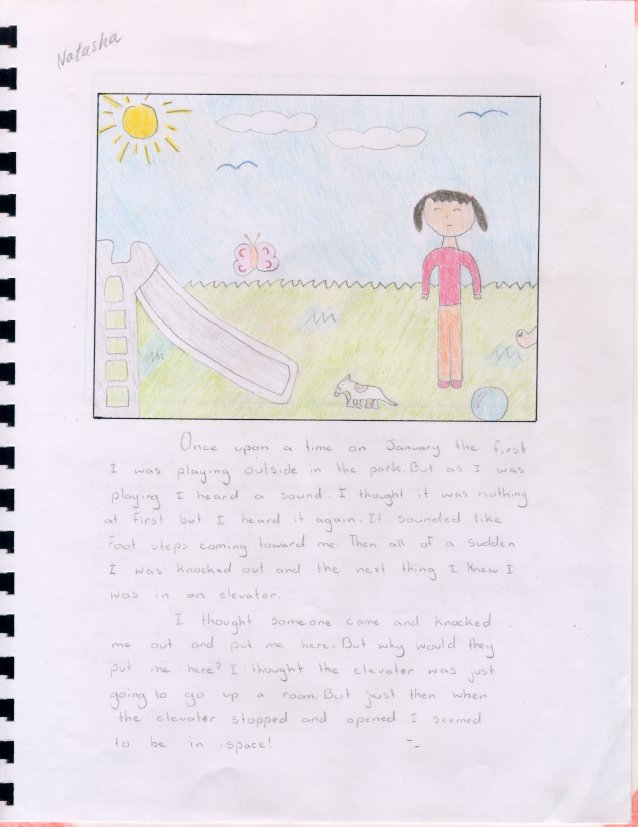 Natasha
Once upon a time on January the first
I was playing outside in the park. But as I was
playing I heard a sound. I thought it was nothing
at first but I heard it again. It sounded like
foot steps coming toward me. Then all of a sudden
I was knocked out and the next thing I knew I
was in an elevator.
I thought someone came and knocked
me out and put me here. But why would they
put me here? I thought the elevator was just
going to go up a room. But just then when
the elevator stopped and opened I seemed
to be in space!